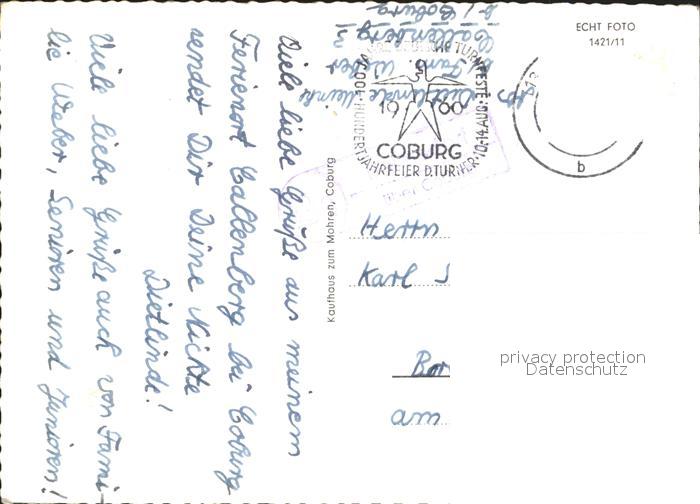 ECHT FOTO
1421/11
b / Coburg
Callenberg
b. Fam. Weber
Abs. Dietlinde
100 JAHRE DEUTSCHE TURNFESTE
HUNDERTJAHRFEIER D. TURNER · 10.-14. AUG.
1960
COBURG
b
Kaufhaus zum Mohren, Coburg
Herrn
Karl
Bor
am
privacy protection
Datenschutz
Viele liebe Grüße aus meinem
Ferienort Callenberg bei Coburg
sendet Dir Deine Nichte
Dietlinde!
Viele liebe Grüße auch von Fami-
lie Weber, Senioren und Junioren!